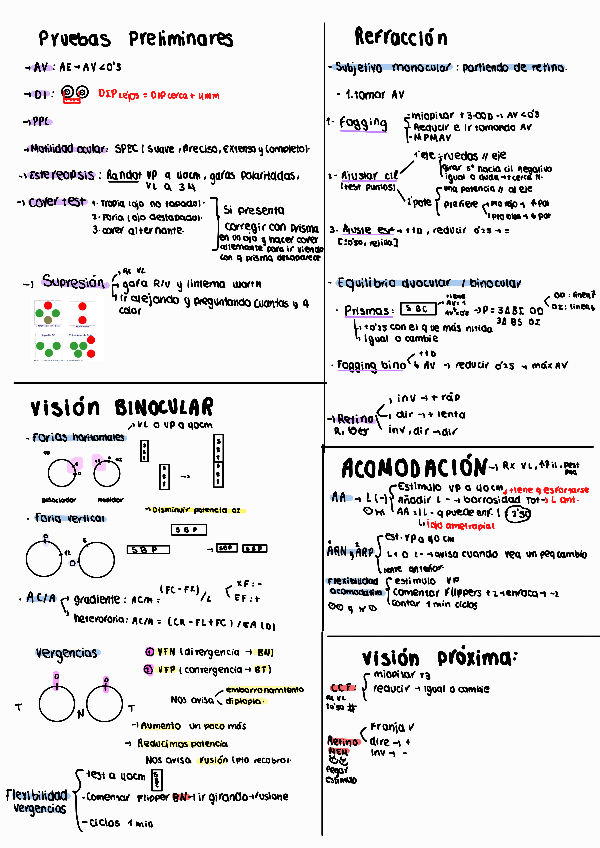 Pruebas Preliminares
→ AV : AE → AV < 0'5
→ DI :
DIP lejos = DIP cerca + 4mm
→ PPC
→ Motilidad ocular: SPEC (Suave, Preciso, Extenso y Completo).
→ Estereopsis : Randot VP a 40cm, gafas polarizadas,
VL a 3M
→ Cover test
1. tropia (ojo no tapado).
2. Foria (ojo destapado).
3. cover alternante.
Si presenta
corregir con prisma
en un ojo y hacer cover
alternante para ir viendo
con q prisma desaparece
→ Supresión
RX VL
gafa R/V y linterna Worth
Ir alejando y preguntando cuantas y q
color
Refracción
- Subjetivo monocular : partiendo de retino.
- 1. tomar AV
1. Fogging
- miopizar +3.00D → AV < 0'5
- Reducir e ir tomando AV
- MPMAV
2. Ajustar cil
(test puntos)
1º eje → ruedas // eje
girar 5º hacia cil negativo
igual o duda →
2º pote
una potencia // al eje
prefiere
3. Ajuste esf → +1D, reducir 0'25 → =
- Equilibrio duocular / binocular
· Prismas:
S B C
→ P = 3Δ BI OD
3Δ BS OI
OD : línea
OI : línea
+0'25 con el que más nítida
Igual o cambie
· Fogging bino
+1D
AV → reducir 0'25 → máx AV
→ Retino
inv → + ráp
dir → + lenta
inv, dir → dir
Visión BINOCULAR
→ VL o VP a 40cm
· Forias horizontales
disociador
medidor
→ Disminuir potencia
· Foria vertical
S B P
S B P
→
SBP
SBP
· AC/A
gradiente : AC/A =
(FC - FX)
/L
XF : -
EF : +
heteroforia: AC/A =
ACOMODACIÓN → RX VL,
AA → L (-)
Estímulo VP a 40cm → tiene q esforzarse
Añadir L - → borrosidad Tot → L ant.
AA = | L - q puede enf. | + 2'50
↳ ojo ametropia!
ARN y ARP
est. VP a 40 cm
L + o L - → avisa cuando vea un peq cambio
lente anterior
Flexibilidad
acomodativa
estímulo VP
Comenzar Flippers +2 → enfoca → -2
Contar 1 min ciclos
Vergencias
① VFN (divergencia → BN)
② VFP (convergencia → BT)
Nos avisa
emborronamiento
diplopia.
T
N
T
→ Aumento un poco más
→ Reducimos potencia
Nos avisa fusión (pto recobro).
Flexibilidad
vergencias
test a 40cm
- Comenzar Flipper BN → ir girando → fusione
- Ciclos 1 min
Visión próxima:
CCF
RX VL
miopizar
reducir → igual o cambie
Retino
MEM
Pegar
estímulo
Franja V
dire → +
inv → -